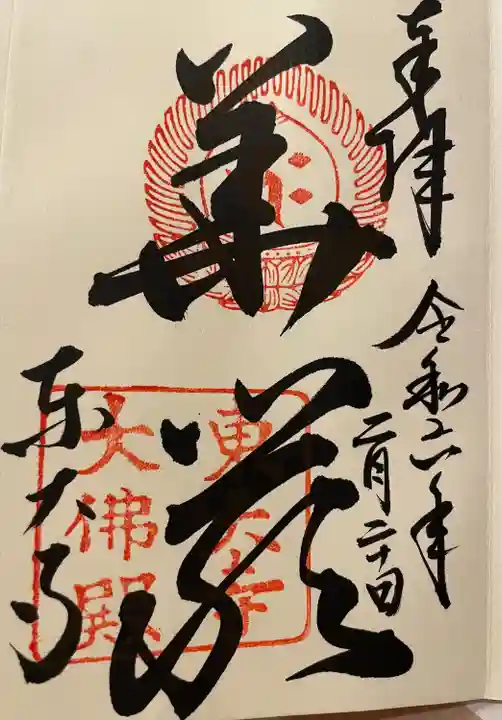 奉拝
令和六年
二月二十四日
華嚴
東大寺
東大寺
大佛殿